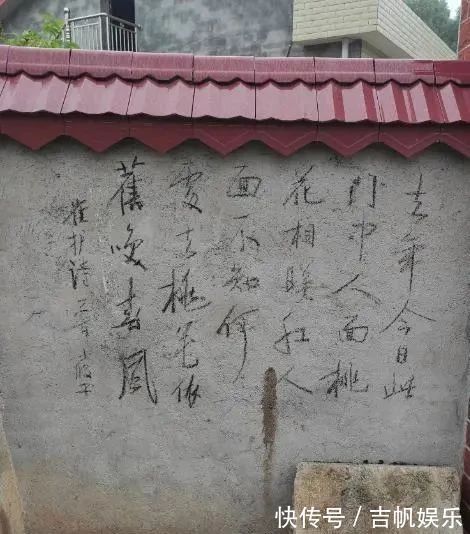 去年今日此
门中人面桃
花相映红人
面不知何
處去桃花依
舊咲春風
崔护诗
快传号 / 吉帆娱乐